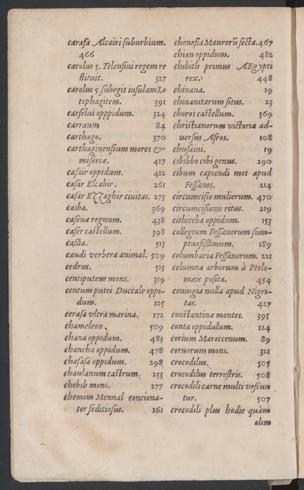 carafa Alcairi suburbium.
466
carolus 5. Telensini regem re
stituit. 327
carolus 5. subegit insulam Lo
tophagitem. 391
carselui oppidum. 324
carraum 84
carthago. 370
carthaginensium mores &
miseria. 417
casair oppidum. 412
casar Elcabir. 261
casar Ezzaghir ciuitas. 273
casba. 369
casena regnum. 438
caser castellum. 398
castia. 513
caudi verbera animal. 509
cedrus. 515
centiputem mons. 319
centum putei Duccale oppi-
dum. 125
cerasa vltra marina. 172
chameleon. 509
chana oppidum. 483
chancha oppidum. 478
chasasa oppidum. 298
chaulanum castrum. 253
chebib mons. 277
chemim Mennal conciona-
tor seditiosus. 161
chenesia Maurorũ secta. 467
chian oppidum. 482
chibith primus AEgypti
rex. 448
chinana. 19
chinanitarum situs. 23
choros castellum. 369
christianorum victoria ad-
uersus Afros. 108
chusaini. 19
cibibbo cibi genus. 290
cibum capiendi mos apud
Fessanos. 214
circumcisio mulierum. 470
circumcisionis ritus. 219
cithiteba oppidum. 153
collegium Fessanorum sum-
ptuosissimum. 189
columbaria Fessanorum. 221
columna arborum à Ptolo-
mæi posita. 454
coniugia nulla apud Nigri-
tas. 427
constantinæ montes. 395
conta oppidulum. 124
corium Maroccenum. 89
cotuorum mons. 312
crocodilus. 505
crocodilus terrestris. 508
crocodili carne multi vescun
tur. 507
crocodili plus hodie quàm
olim